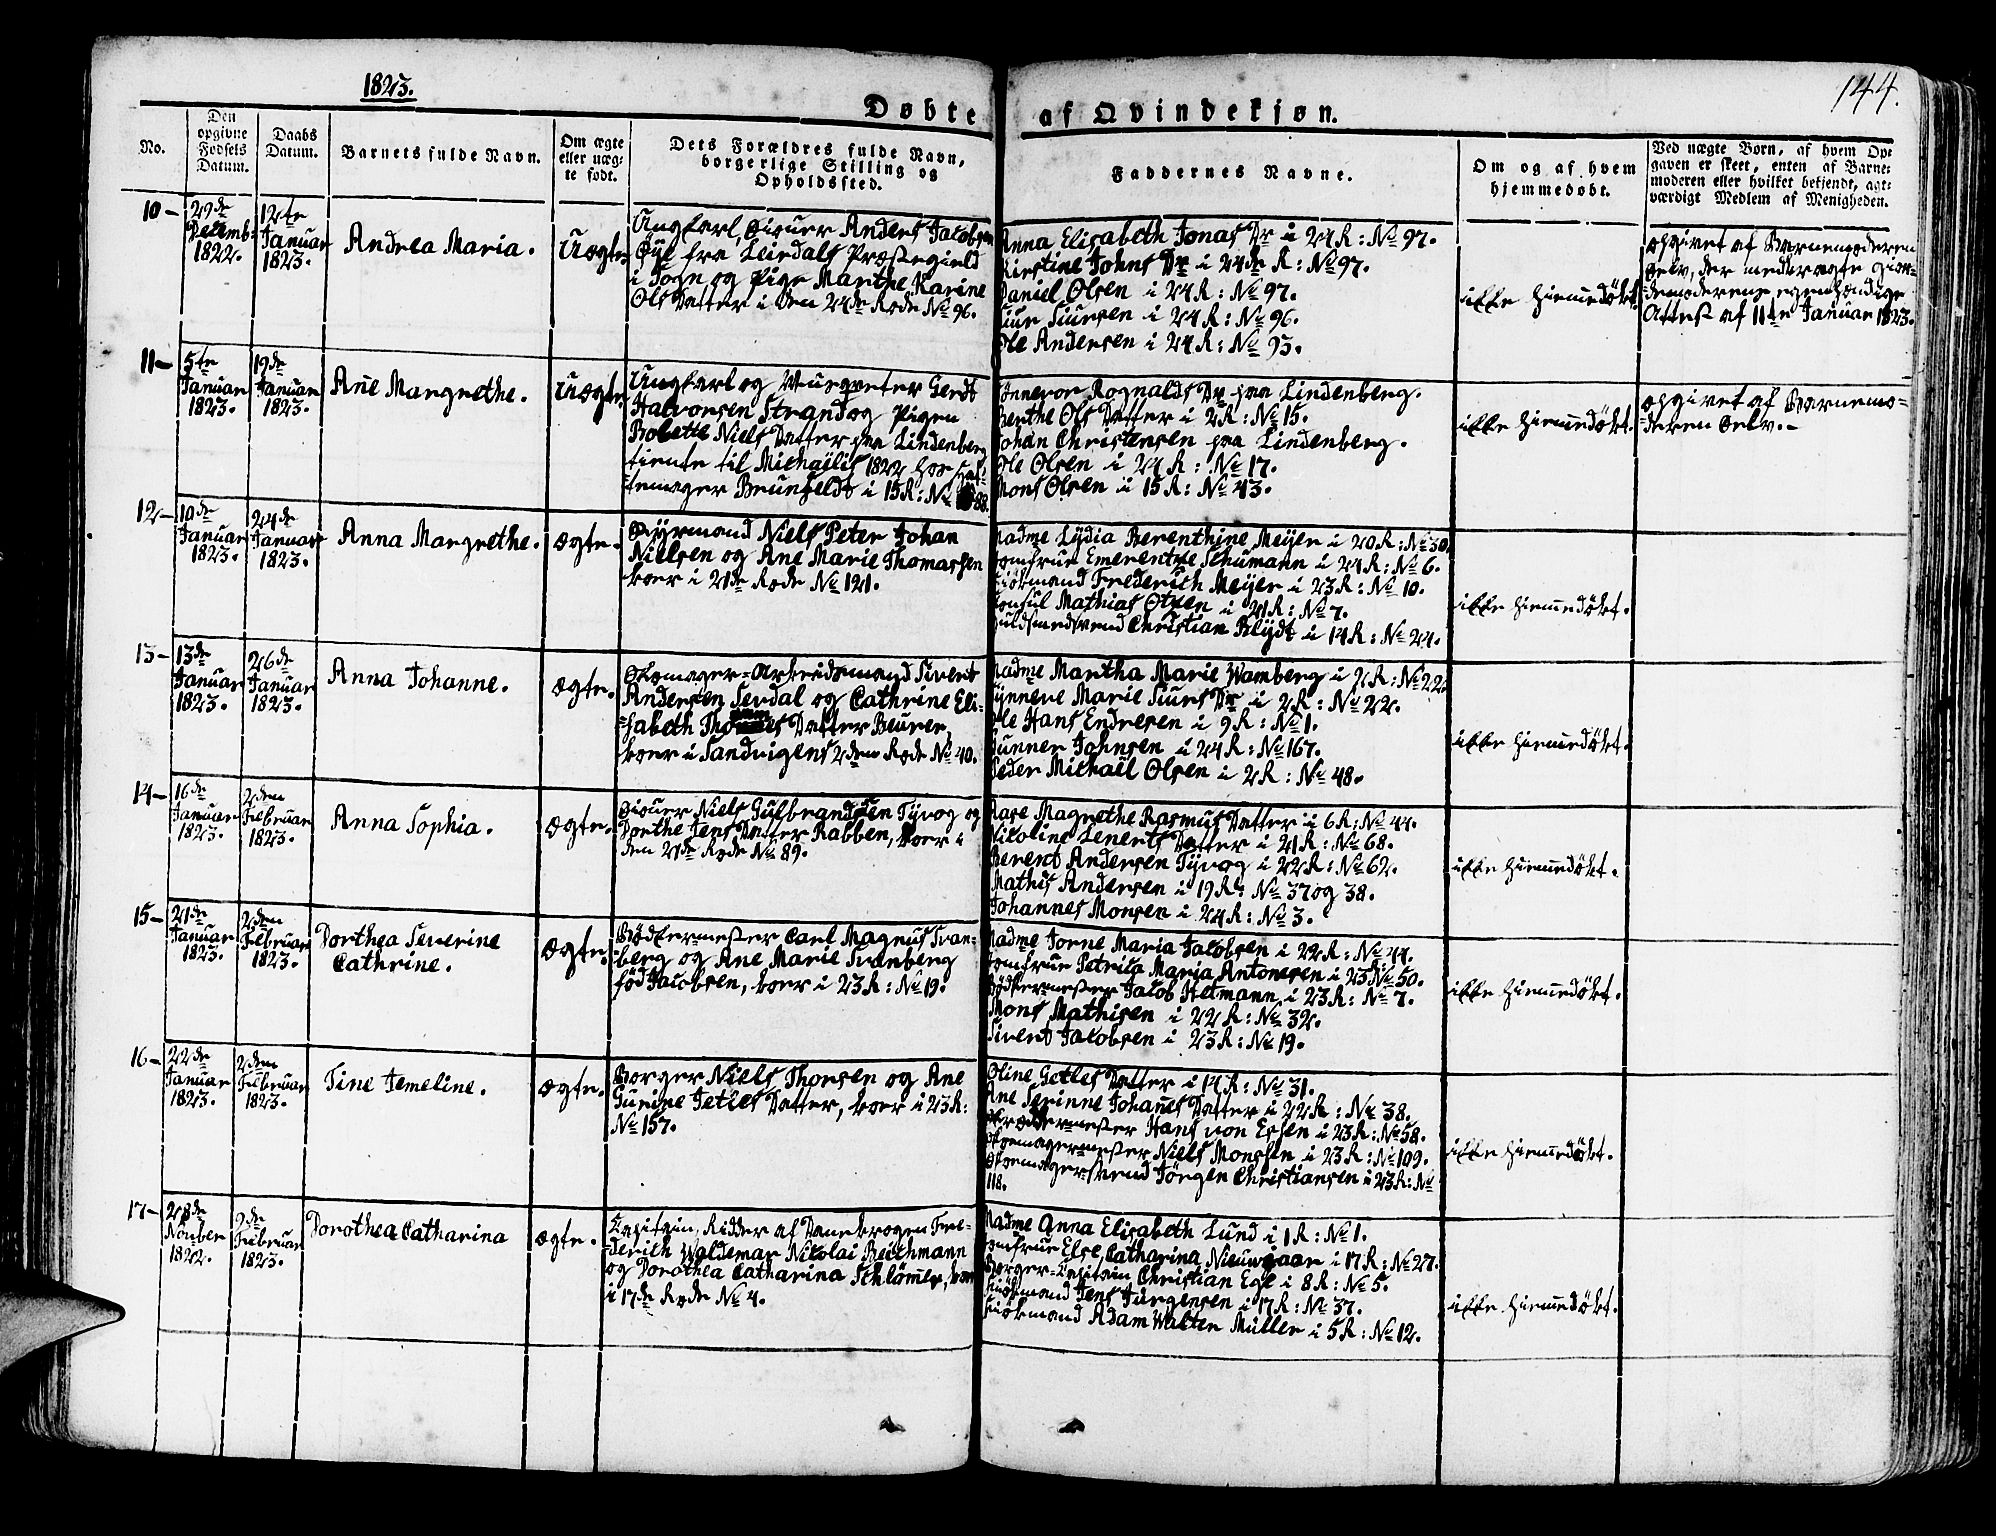 1823.
144.
Døbte af Qvindekjøn.
No.
Den
opgivne
Fødsels
Datum.
Daabs
Datum.
Barnets fulde Navn.
Om ægte
eller uæg-
te født.
Dets Forældres fulde Navn,
borgerlige Stilling og
Opholdssted.
Faddernes Navne.
Om og af hvem
hjemmedøbt.
Ved uægte Børn, af hvem Op-
gaven er skeet, enten af Barne-
moderen eller hvilket bekjendt, agt-
værdigt Medlem af Menigheden.
10-
29de
Decemb-
1822.
12te
Januar
1823.
Andrea Maria.
Uægte
Ungkarl, Anders Jacobsen
fra Leirdals Præstegield
i Sogn og Pige Marthe Karine
Ols Datter i den 24de Rode No 96.
Anna Elisabeth Jonas Dr i 24R: No 97.
Kirstine Johns Dr i 24de R: No 97.
Daniel Olsen i 24R: No 97.
Siur Siursen i 24R: No 96.
Ole Andersen i 24R: No 93.
ikke hiemmedöbt.
opgivet af Barnemoderen
Selv, der medbragte Gior-
demoderens egenhændige
Attest af 11te Januar 1823.
11-
5te
Januar
1823.
19de
Januar
1823.
Ane Margrethe.
Uægte
Ungkarl og Gerdt
Halvorsen Strand og Pigen
Bolette Niels Datter paa Lindenberg
tiente til Michaÿlis 1822 hos Hat-
temager Brunfeldt i 15R: No 88.
Rognalds Dr paa Lindenberg.
Berthe Ols Datter i 2R: No 15.
Johan Christensen paa Lindenberg.
Ole Olsen i 24R: No 17.
Mons Olsen i 15R: No 43.
ikke hiemmedöbt.
opgivet af Barnemo-
deren Selv.-
12-
10de
Januar
1823.
24de
Januar
1823.
Anna Margrethe.
Ægte.
Styrmand Niels Peter Johan
Nielsen og Ane Marie Thomassen
boer i 21de Rode No 121.
Madme Lÿdia Berenthine Meÿer i 20R: No 30.
Jomfrue Emerentze Schumann i 24R: No 6.
Kiöbmand Frederich Meÿer i 23R: No 10.
Consul Mathias i 21R: No 7.
Guldsmedsvend Christian Blÿdt i 14R: No 24.
ikke hiemmedöbt.
13-
13de
Januar
1823.
26de
Januar
1823.
Anna Johanne.
Ægte.
Skomager-Arbeidsmand Sivert
Andersen Serdal og Cathrine Eli-
sabeth Datter Beurer,
boer i Sandvigens 2den Rode No 40.
Madme Martha Marie Wamberg i 2R: No 22.
Synneve Marie Siurs Dr i 2R: No 22.
Ole Hans Endresen i 9R: No 1.
Gunner Johnsen i 24R: No 167.
Peder Michaël Olsen i 2R: No 48.
ikke hiemmedöbt.
14-
16de
Januar
1823.
2den
Februar
1823.
Anna Sophia.
Ægte.
Niels Gulbrandsen Tÿvog og
Dorthe Jens Datter Rabben, boer i
den 21de Rode No 89.
Kare Magrethe Rasmus Datter i 6R: No 44.
Nicoline Lenerts Datter i 21R: No 68.
Berent Andersen Tÿvog i 22R: No 62.
Mathis Andersen i 19R: No 37 og 38.
Johannes Monsen i 24R: No 3.
ikke hiemmedöbt.
15-
21de
Januar
1823.
2den
Februar
1823.
Dorthea Severine
Cathrine.
Ægte.
Bödkermester Carl Magnus Svan-
berg og Ane Marie Svanberg
föd Jacobsen, boer i 23R: No 19.
Madme Jorne Maria Jacobsen i 22R: No 44.
Jomfrue Petrica Maria Antonesen i 23 No 50.
Bödkermester Jacob Hetmann i 23R: No 7.
Mons Mathisen i 22R: No 32.
Sivert Jacobsen i 23R: No 19.
ikke hiemmedöbt.
16-
22de
Januar
1823.
2den
Februar
1823.
Tine Jemeline.
Ægte.
Borger Niels Thorsen og Ane
Gurine Jetles Datter, boer i 23R:
No 157.
Oline Getles Datter i 14R: No 31.
Ane Serinne Johañes Datter i 22R: No 38.
Skrædermester Hans von Essen i 23R: No 58.
Skomagermester Niels Monssen i 23R: No 109.
Skomagersvend Jörgen Christiansen i 23R: No
118.
ikke hiemmedöbt.
17-
28de
Novber
1822.
9de
Februar
1823.
Dorothea Catharina
Ægte.
Capitain, Ridder af Danebrogen Fre-
derich Woldemar Nicolai Beichmann
og Dorothea Catharina Schlömer, boer
i 17de Rode No 4.
Madme Anna Elisabeth Lund i 1R: No 1.
Jomfrue Else Catharina Nieuwejaar i 17R: No 27.
Borger-Capitain Christian Ege i 8R: No 5.
Kiöbmand Jens Jürgensen i 17R: No 37.
Kiöbmand Adam Walter Müller i 5R: No 12.
ikke hiemmedöbt.